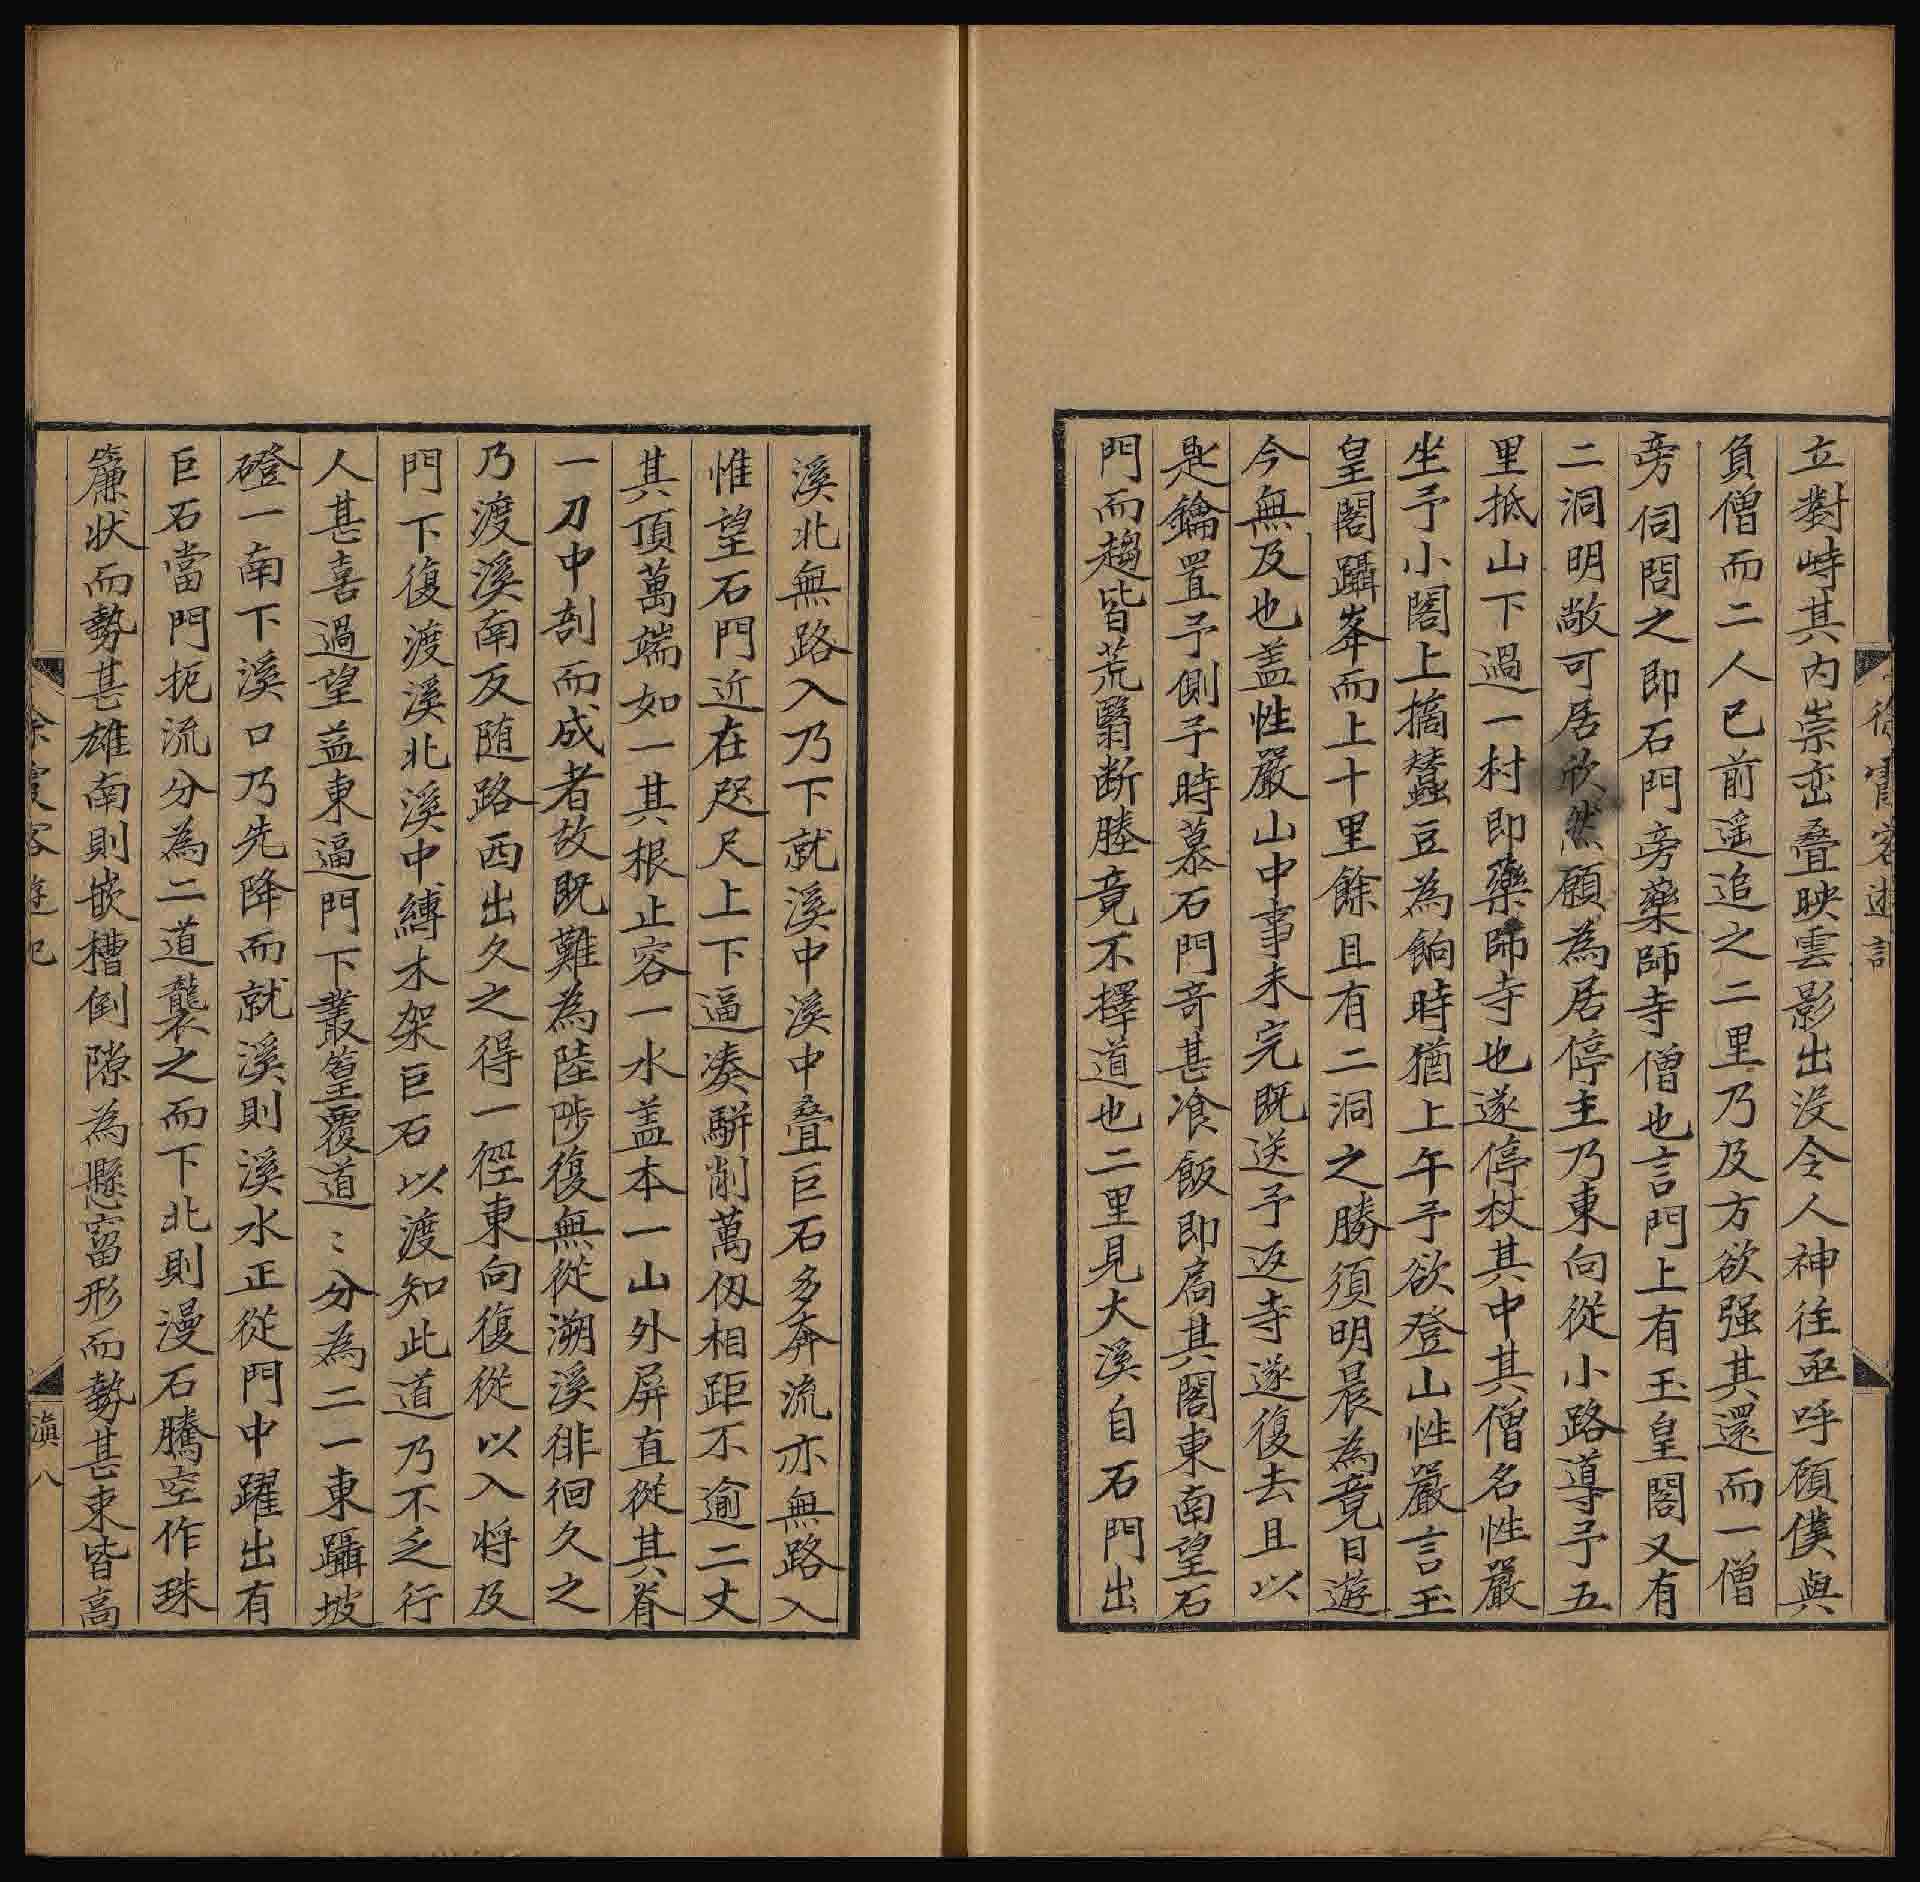 徐霞客遊記
立對峙其内崇巒疊映雲影出没令人神往亟呼顧僕與
負僧而二人已前遥追之二里乃及方欲强其還而一僧
旁伺問之即石門旁藥師寺僧也言門上有玉皇閣又有
二洞明敞可居欣然顧為居停主乃東向從小路導予五
里抵山下過一村即藥師寺也遂停杖其中其僧名性嚴
坐予小閣上摘蠶豆為餉時猶上午予欲登山性嚴言玉
皇閣躡峯而上十里餘且有二洞之勝須明晨為竟日遊
今無及也盖性嚴山中事未完既送予返寺遂復去且以
匙鑰置予側予時慕石門竒甚飡飯即扄其閣東南望石
門而趨皆荒翳断塍竟不擇道也二里見大溪自石門出
溪北無路入乃下就溪中溪中疊巨石多奔流亦無路入
惟望石門近在咫尺上下逼凑駢削萬仭相距不逾二丈
其頂萬端如一其根止容一水盖本一山外屏直從其脊
一刀中剖而成者故既難為陸陟復無從溯溪徘徊久之
乃渡溪南反随路西出久之得一徑東向復從以入将及
門下復渡溪北溪中縛木架巨石以渡知此道乃不乏行
人甚喜過望益東逼門下叢篁覆道〻分為二一東躡坡
磴一南下溪口乃先降而就溪則溪水正從門中躍出有
巨石當門扼流分為二道襲之而下北則漫石騰空作珠
簾状而勢甚雄南則嵌槽倒隙為懸窗形而勢甚束皆高
徐霞客遊記
滇八